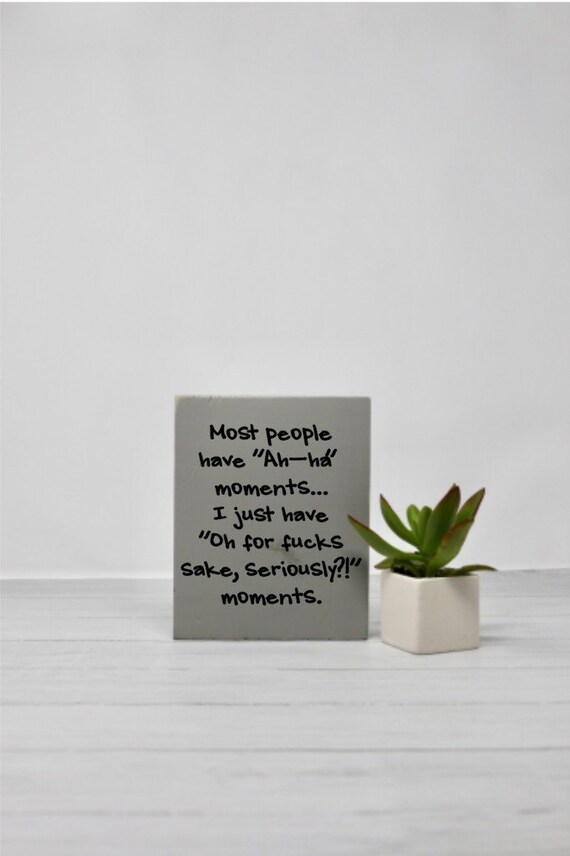 Most people
have "Ah-ha"
moments...
I just have
"Oh for fucks
sake, seriously?!"
moments.